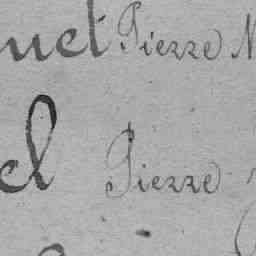 uet Pierre N
el Pierre